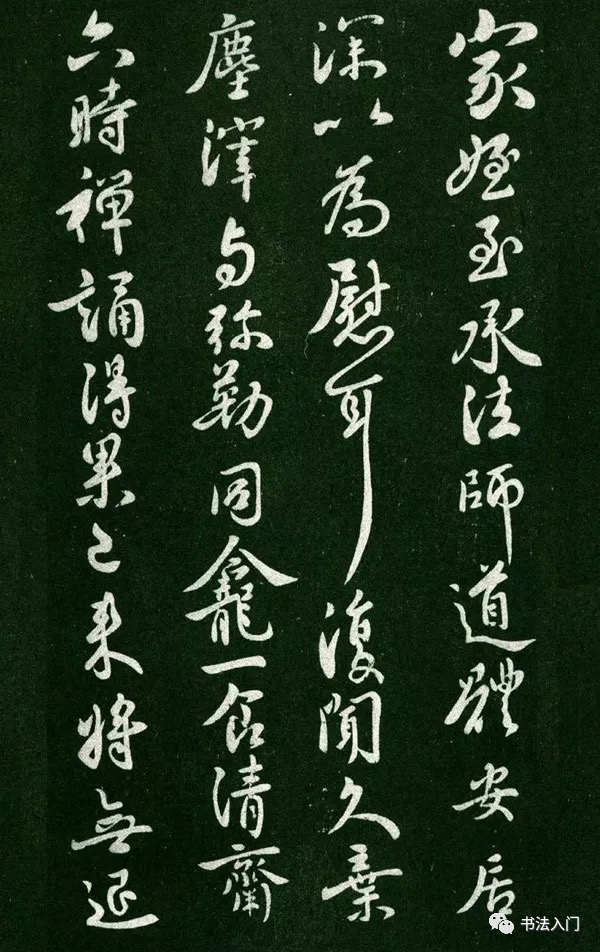 家姪至承法師道體安居
深以為慰耳復聞久棄
塵滓与弥勒同龕一食清齋
六時禪誦得果已来將無退
书法入门